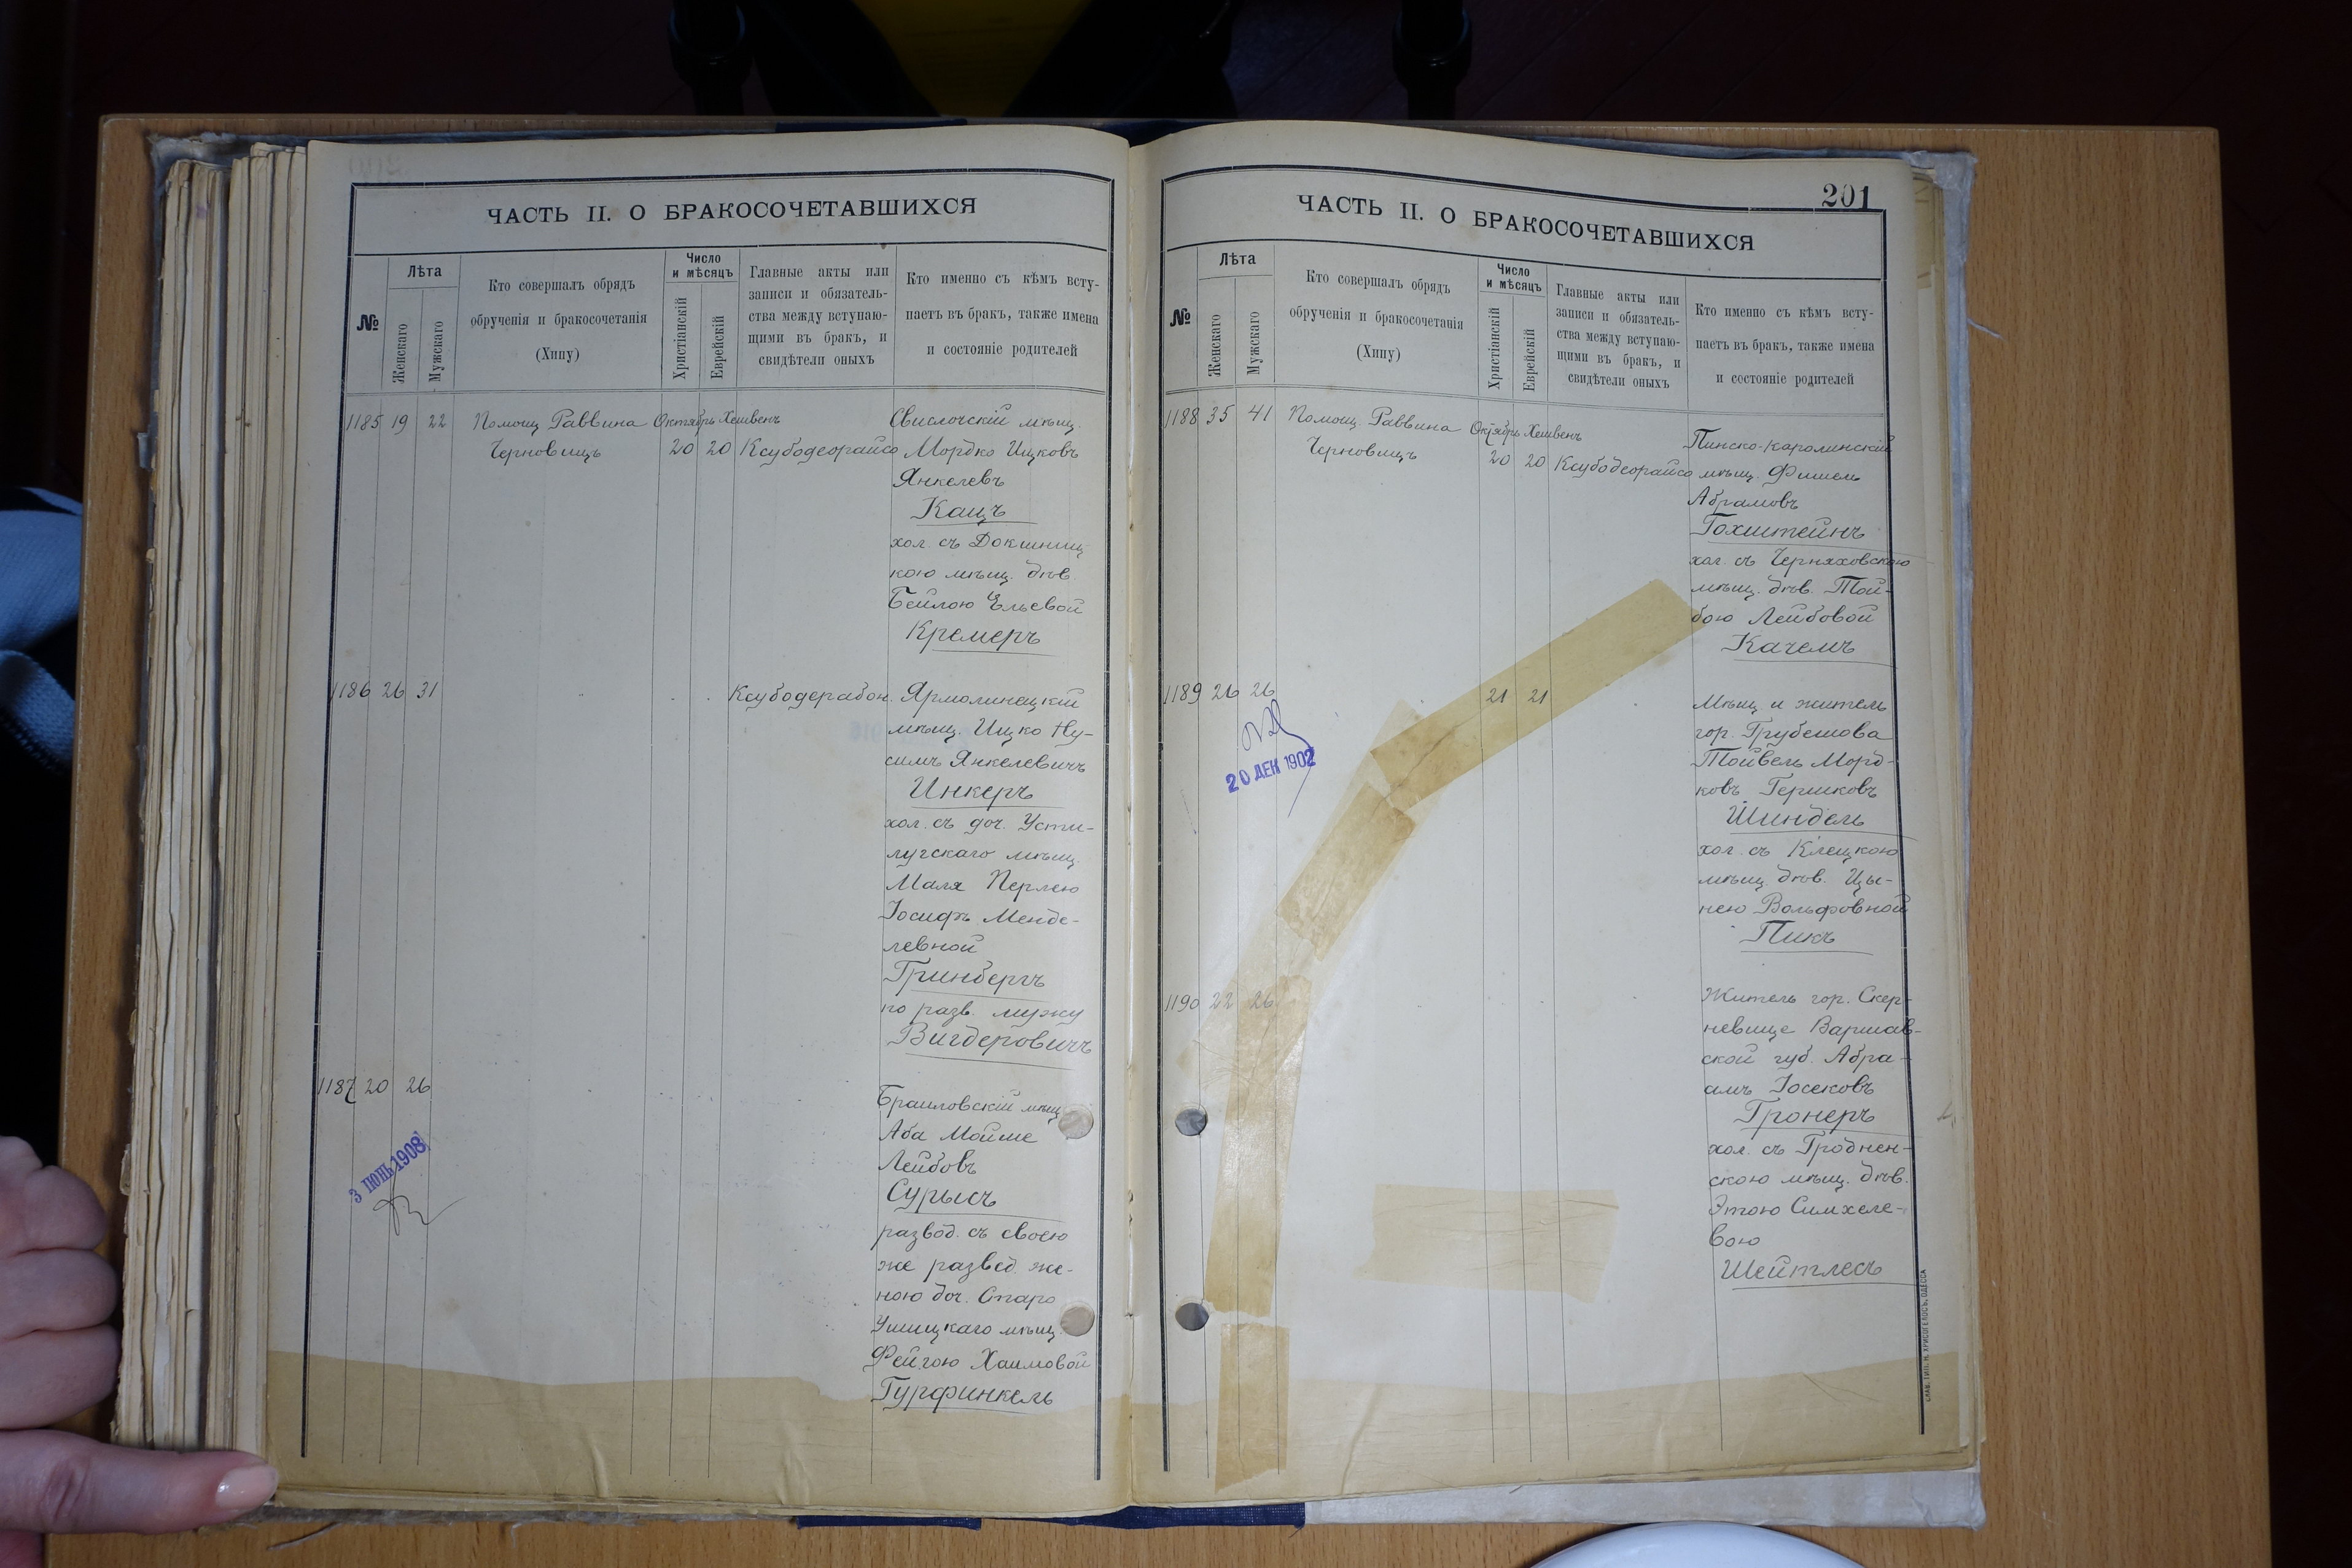 ЧАСТЬ II. О БРАКОСОЧЕТАВШИХСЯ
№
Лѣта
Женскаго
Мужскаго
Кто совершалъ обрядъ
обрученія и бракосочетанія
(Хипу)
Число
и мѣсяцъ
Христіанскій
Еврейскій
Главные акты или
записи и обязатель-
ства между вступаю-
щими въ бракъ, и
свидѣтели оныхъ
Кто именно съ кѣмъ всту-
паетъ въ бракъ, также имена
и состояніе родителей
1185 19 22 Помощ. Раввина Октябрь Хешвенъ Свислочскій мѣщ.
Черновицъ 20 20 Ксубодеорайсо Мордко Ицковъ
Янкелевъ
Кацъ
хол. съ Докшниц
кою мѣщ. дѣв.
Бейлою Ельевой
Кремеръ
1186 26 31 Ксубодерабон. Ярмолинецкій
мѣщ. Ицко Ну-
симъ Янкелевичъ
Инкеръ
хол. съ доч. Усти-
лугскаго мѣщ.
Маля Перлею
Іосифъ Менде-
левной
Гринбергъ
по разв. мужу
Вигдеровичъ
1187 20 26
Браиловскій мѣщ
Аба Мойше
Лейбовъ
Сурысъ
развод. съ своею
же развед. же-
ною доч. Старо
Ушицкаго мѣщ.
Фейгою Хаимовой
Гурфинкель
3 ІЮНЬ 1908
201
ЧАСТЬ II. О БРАКОСОЧЕТАВШИХСЯ
№
Лѣта
Женскаго
Мужскаго
Кто совершалъ обрядъ
обрученія и бракосочетанія
(Хипу)
Число
и мѣсяцъ
Христіанскій
Еврейскій
Главные акты или
записи и обязатель-
ства между вступаю-
щими въ бракъ, и
свидѣтели оныхъ
Кто именно съ кѣмъ всту-
паетъ въ бракъ, также имена
и состояніе родителей
1188 35 41 Помощ. Раввина Октябрь Хешвенъ Пинско-Каролинскій
Черновицъ 20 20 Ксубодеорайсо мѣщ. Фишель
Абрамовъ
Гохштейнъ
хол. съ Черняховскою
мѣщ. дѣв. Той-
бою Лейбовой
Качемъ
1189 26 26 21 21 Мѣщ и житель
гор. Грубешова
Тойвель Морд-
ковъ Гершковъ
Шиндель
хол. съ Клецкою
мѣщ. дѣв. Цы-
пею Вольфовной
Пикъ
20 ДЕК 1902
1190 22 26 Житель гор. Скер-
невице Варшав-
ской губ. Абра-
амъ Іосековъ
Гронеръ
хол. съ Гроднен-
скою мѣщ. дѣв.
Этою Симхеле-
вою
Шейтлесъ
СЛАВ. ТИП. Н. ХРИСОГЕЛОСЪ, ОДЕССА